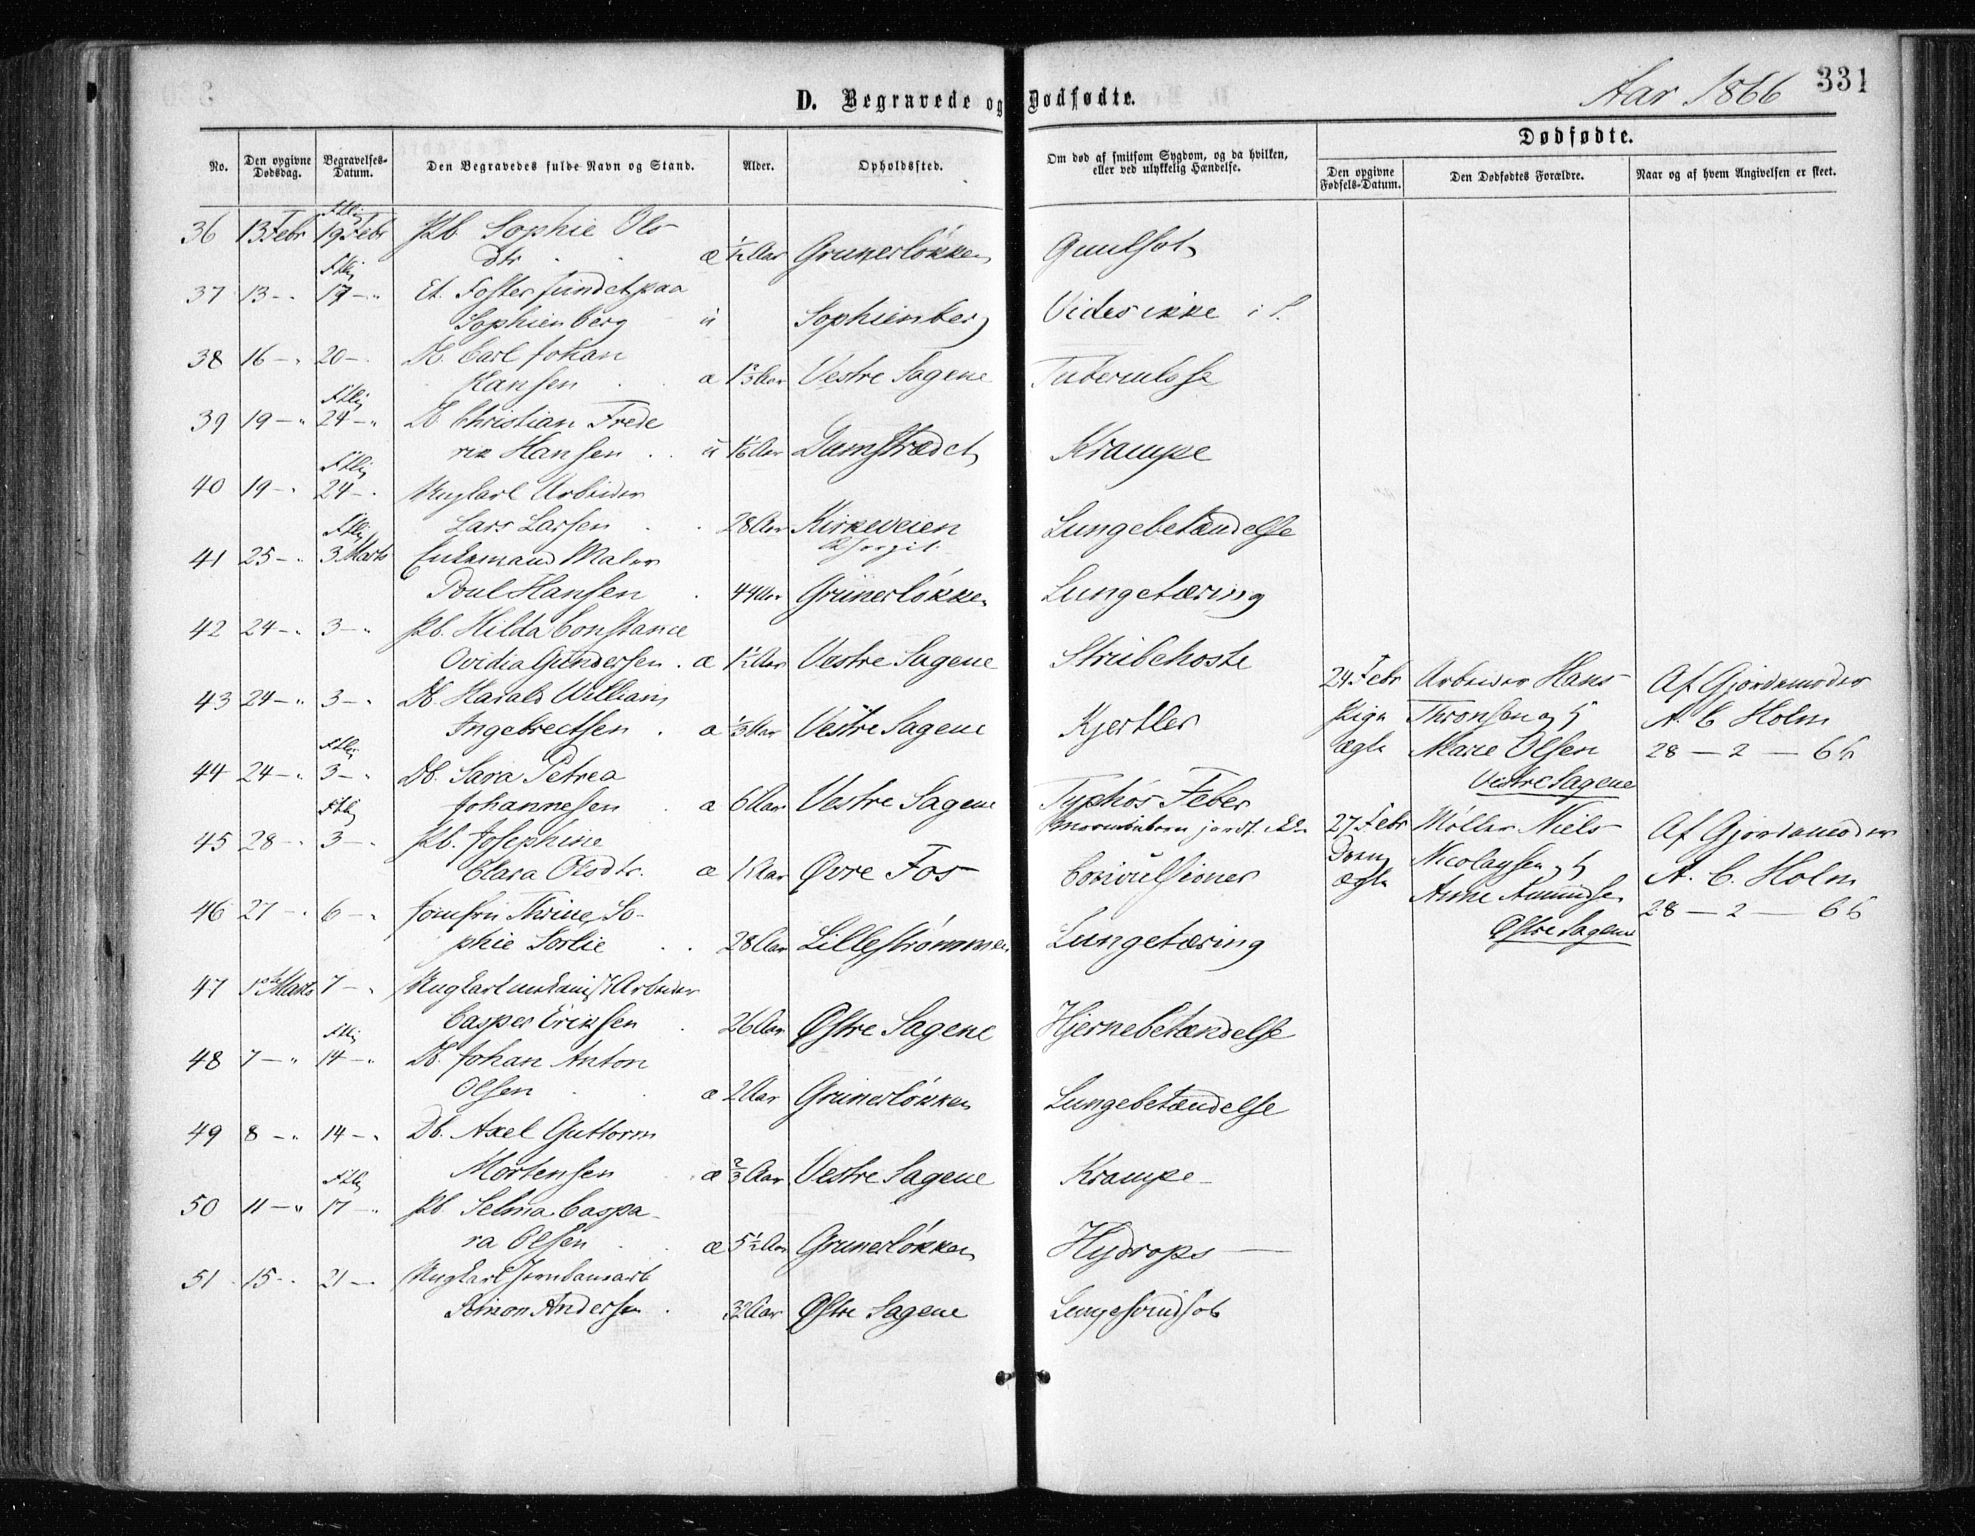 Aar 1866 331
D. Begravede og Dødfødte.
No. Den opgivne Dødsdag. Begravelses-Datum. Den Begravedes fulde Navn og Stand. Alder. Opholdssted. Om død af smitsom Sygdom, og da hvilken, eller ved ulykkelig Hændelse. Dødfødte.
Den opgivne Fødsels-Datum. Den Dødfødtes Forældre. Naar og af hvem Angivelsen er skeet.
36 13 Febr 19 Febr Pb. Sophie Ols-
Dtr. æ 1/12 Aar Grunerløkken Guulsot
37 13 - " 17 - " Et Foster fundet paa
Sophienberg u Sophienberg Vides ikke
38 16 - " 20 - Db. Carl Johan
Hansen æ 1 2/3 Aar Vestre Sagene Tuberculose
39 19 - " 24 - " Db. Christian Frede
rik Hansen u 1 1/6 Aar Damstrædet Krampe
40 19 - " 24 - " Ungkarl Arbeider
Lars Larsen 28 Aar Kirkeveien Lungebetændelse
41 25 - " 3 Marts Enkemand Maler
Poul Hansen 44 Aar Grünerløkken Lungetæring
42 24 - " 3 - " Pb. Hilda Constance
Ovidia Gundersen æ 1 1/2 Aar Vestre Sagene Strubehoste
43 24 - " 3 - " Db. Harald William
Ingebrectsen æ 1/3 Aar Vestre Sagene Kjertler
44 24 - " 3 - " Db. Sara Petrea
Johannesen æ 6 Aar Vestre Sagene Typhøs Feber
45 28 - " 3 - " Pb. Josephine
Clara Olsdtr. æ 1 Aar Øvre Fos Convulsioner
46 27 - " 6 - " Jomfru Thrine So-
phie Sorlie 28 Aar Lillestrømmen Lungetæring
47 1ste Marts 7 - " Ungkarl mekanisk Arbeider
Casper Eriksen 26 Aar Østre Sagene Hjernebetændelse
48 7 - " 14 - " Db. Johan Anton
Olsen æ 2 Aar Grünerløkken Lungebetændelse
49 8 - " 14 - " Db. Axel Guttorm
Mortensen æ 2/3 Aar Vestre Sagene Krampe -
50 11 - " 17 - " Pb. Selma Caspa-
ra Olsen æ 5 1/2 Aar Grunerløkken Hydrops
51 15 - " 21 - " Ungkarl
Simon Andersen 32 Aar Østre Sagene Lungesvindsot
24 Febr Arbeider Hans Af Gjordemoder
Pige Thronsen og A. C. Holm
ægte Marie Olsen 28 - 2 - 66
Vestre Sagene
27 Febr Møller Niels Af Gjordemoder
Dreng Nicolaysen og A. C. Holm
ægte Anne Amundsen 28 - 2 - 66
Østre Sagene